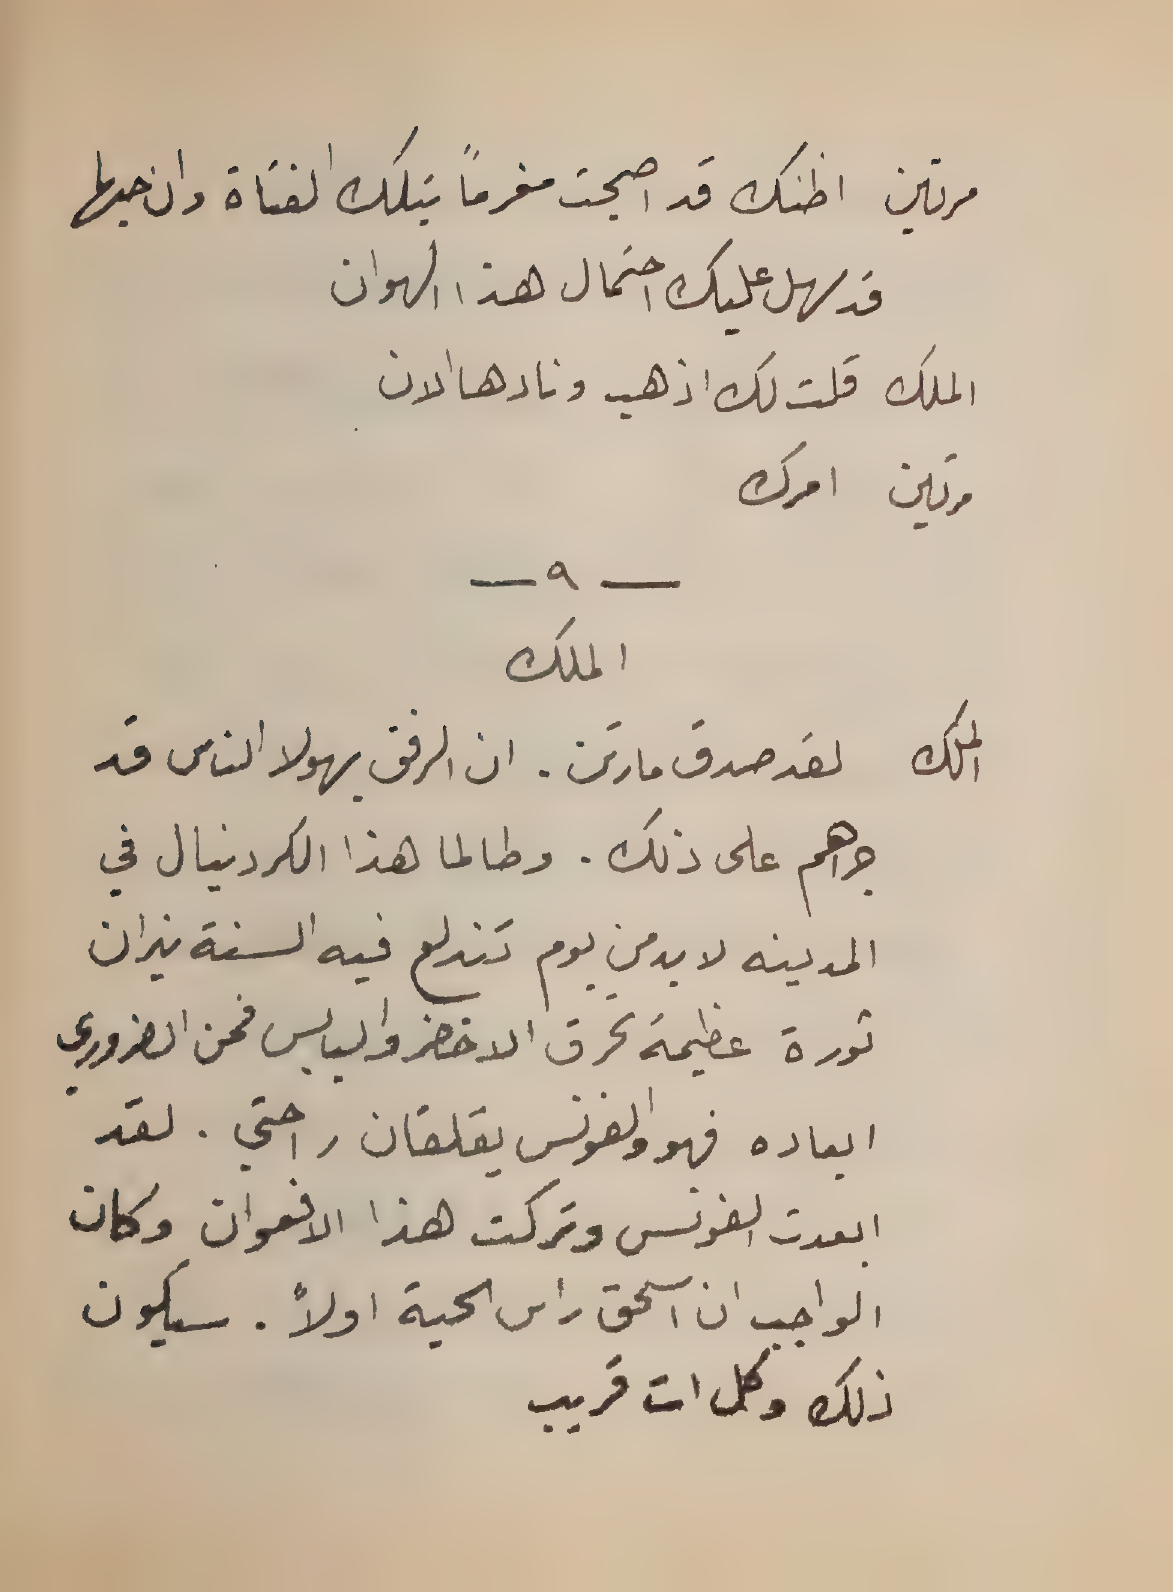 مرتين اظنك قد اصبحت مغرماً بتلك الفتاة وان حبها
قد سهل عليك احتمال هذا الهوان
الملك قلت لك اذهب ونادها الان
مرتين امرك
— ٩ —
الملك
الملك لقد صدق مارتن . ان الرفق بهولا الناس قد
جراهم على ذلك . وطالما هذا الكردينال في
المدينه لا بد من يوم تندلع فيه السنة نيران
ثورة عظيمة تحرق الاخضر واليابس فمن الضروري
ابعاده فهو والفونس يقلقان راحتي . لقد
ابعدت الفونس وتركت هذا الافعوان وكان
الواجب ان اسحق راس الحية اولاً . سيكون
ذلك وكل ات قريب